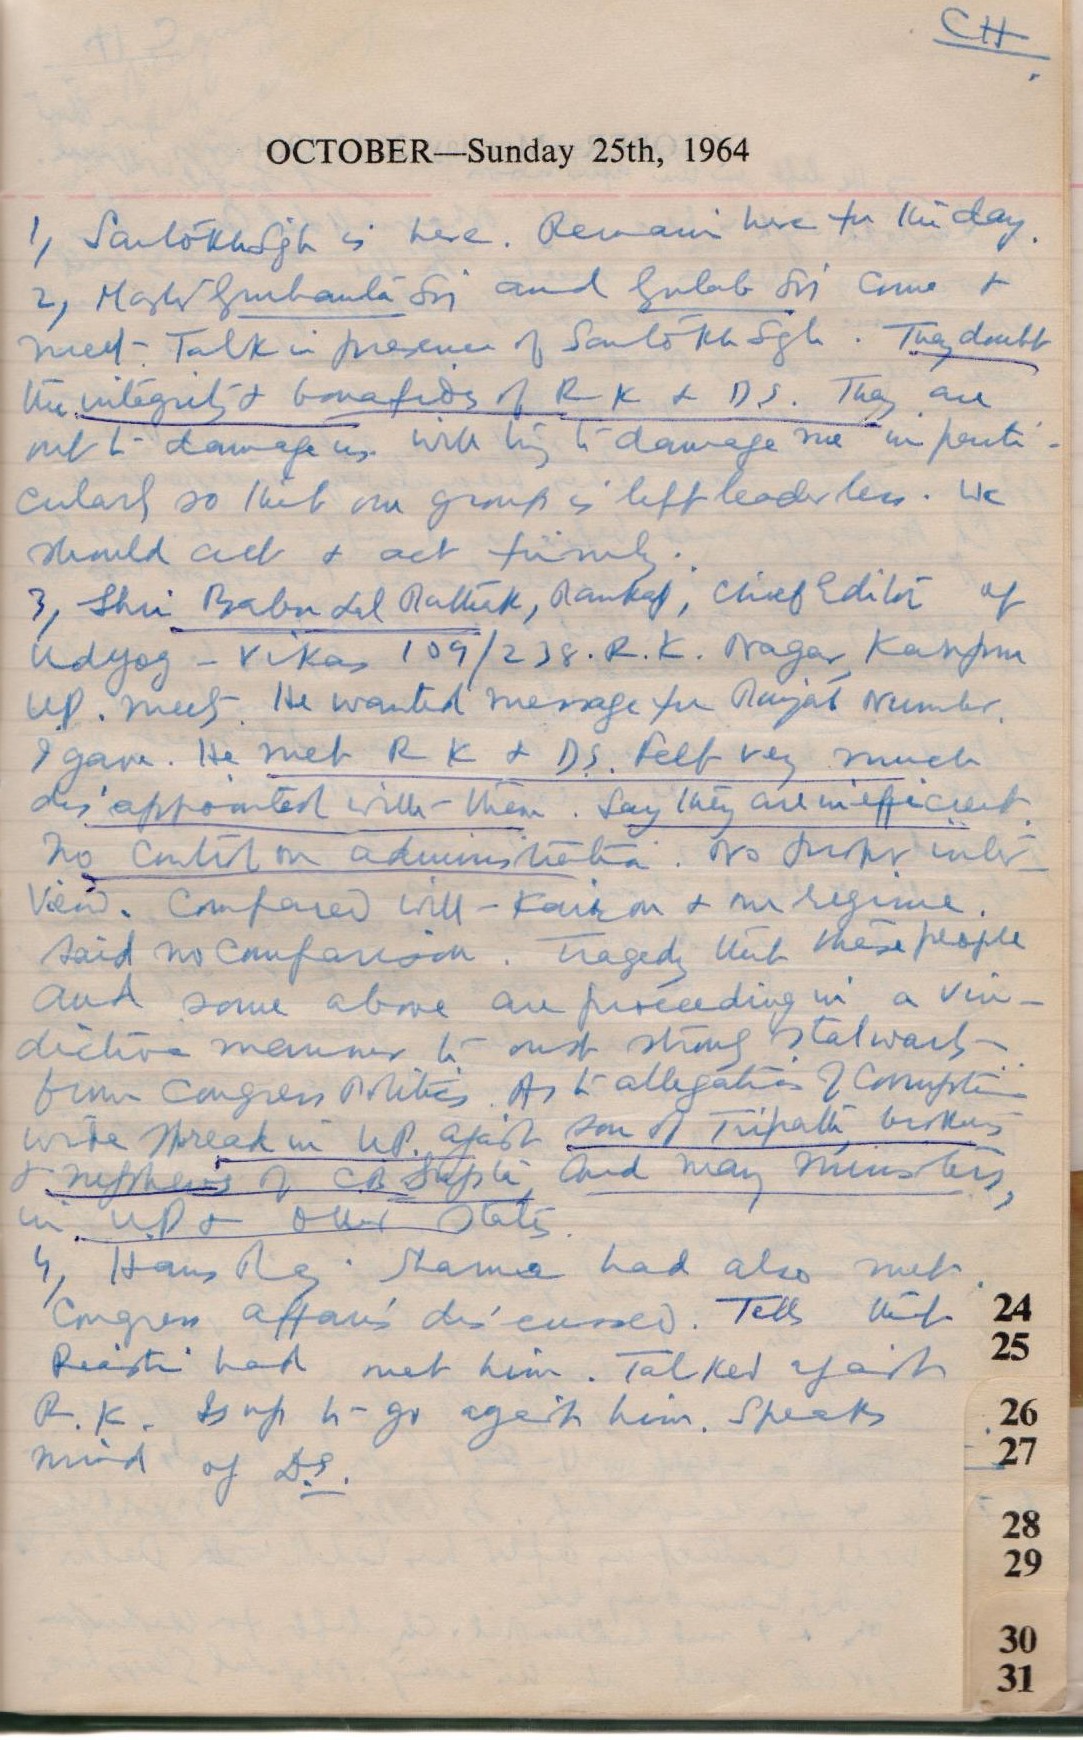 CH
OCTOBER—Sunday 25th, 1964
1, Santokh Sgh is here. Remain here for the day.
2, Gurbanta Sgj and Gulab Sgj come &
meet. Talk in presence of Santokh Sgh. They doubt
the integrity & bonafides of R K & D.S. They are
out to damage us. Will try to damage me in parti-
cularly so that our group is left leaderless. We
should act & act firmly.
3, Shri Babu Lal Pathak, Chief Editor of
Udyog - Vikas 109/238. R.K. Nagar, Kanpur
U.P. meets. He wanted message for Punjab Number.
I gave. He met R K & D.S. Felt very much
disappointed with them. Say they are inefficient.
No control on administration. No proper inter-
view. Compared with - Kairon & our regime.
Said no comparison. Tragedy that these people
and some above are proceeding in a vin-
dictive manner to oust strong stalwarts
from Congress Politics. As to allegations of Corruption
wide spread in U.P. against son of Tripathi, brothers
& nephews of C B Gupta, and many Ministers,
in U.P & other States.
4, Hans Raj Sharma had also met.
Congress affairs discussed. Tells that
had met him. Talked against
R.K. Is up to go against him. Speaks
mind of D.S.
24
25
26
27
28
29
30
31